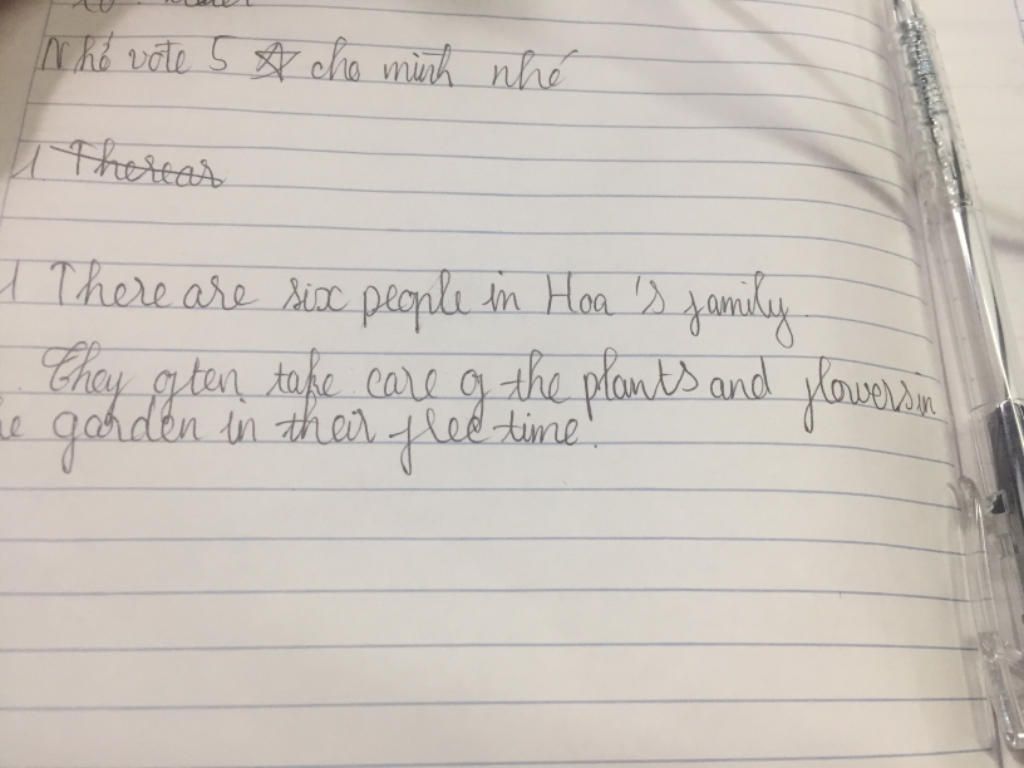 Nhớ vote 5 ☆ cho mình nhé
1 Therear
1 There are six people in Hoa's family
They often take care of the plants and flowers in
garden in their free time.